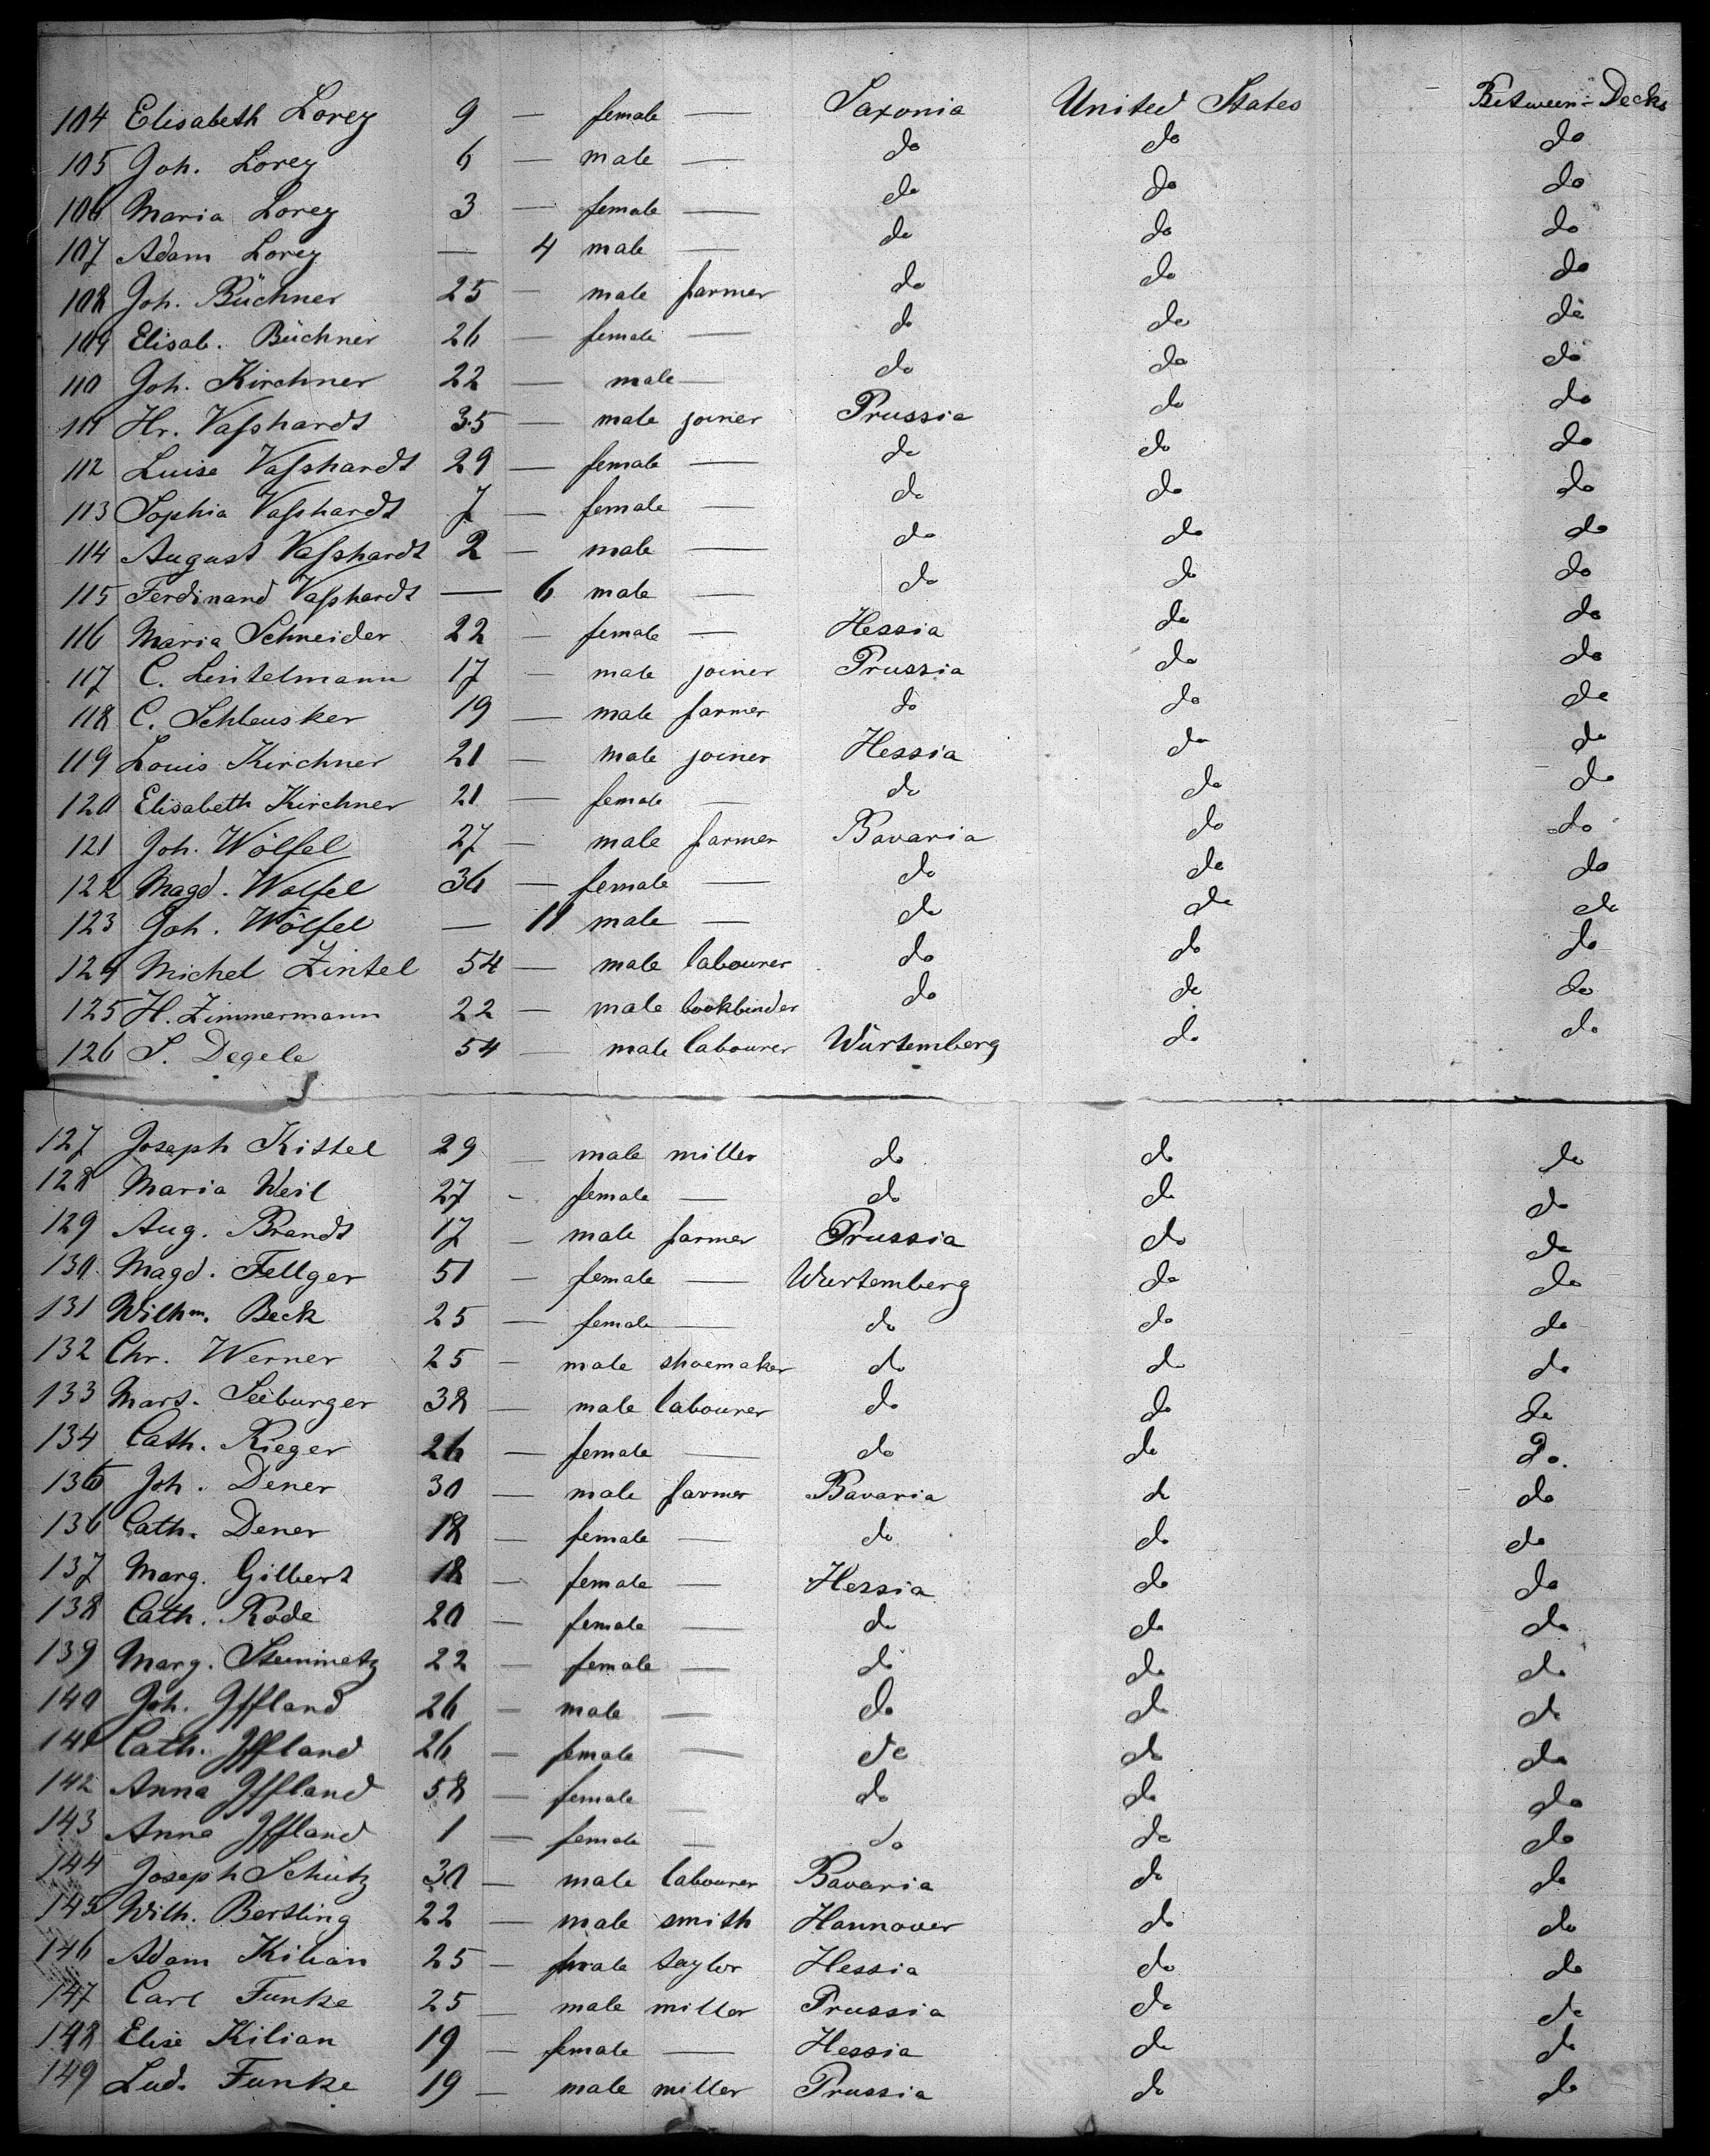 104 Elisabeth Lorey 9 — female — Saxonia United States Between-Decks
105 Joh. Lorey 6 — male — do do do
106 Maria Lorey 3 — female — do do do
107 Adam Lorey — 4 male — do do do
108 Joh. Büchner 25 — male farmer do do do
109 Elisab. Büchner 26 — female — do do do
110 Joh. Kirchner 22 — male — do do do
111 Hr. Vaſshardt 35 — male joiner Prussia do do
112 Luise Vaſshardt 29 — female — do do do
113 Sophia Vaſshardt 7 — female — do do do
114 August Vaſshardt 2 — male — do do do
115 Ferdinand Vaſshardt — 6 male — do do do
116 Maria Schneider 22 — female — Hessia do do
117 C. Lintelmann 17 — male joiner Prussia do do
118 C. Schleusker 19 — male farmer do do do
119 Louis Kirchner 21 — male joiner Hessia do do
120 Elisabeth Kirchner 21 — female — do do do
121 Joh. Wölfel 27 — male farmer Bavaria do do
122 Magd. Wolfel 36 — female — do do do
123 Joh. Wölfel — 11 male — do do do
124 Michel Zintel 54 — male labourer do do do
125 H. Zimmermann 22 — male bookbinder do do do
126 S. Degele 54 — male labourer Würtemberg do do
127 Joseph Kittel 29 — male miller do do do
128 Maria Weil 27 - female — do do do
129 Aug. Brandt 17 — male farmer Prussia do do
130 Magd. Fellger 51 — female — Wurtemberg do do
131 Wilhm. Beck 25 — female — do do do
132 Chr. Werner 25 — male shoemaker do do do
133 Mart. Seeburger 38 — male labourer do do do
134 Cath. Rieger 26 — female — do do do.
135 Joh. Dener 30 — male farmer Bavaria do do
136 Cath. Dener 18 — female — do do do
137 Marg. Gilbert 18 — female — Hessia do do
138 Cath. Rode 20 — female — do do do
139 Marg. Steinmetz 22 — female — do do do
140 Joh. Iffland 26 — male — do do do
141 Cath. Iffland 26 — female — do do do
142 Anna Iffland 58 — female — do do do
143 Anna Iffland 1 — female — do do do
144 Joseph Schütz 30 — male labourer Bavaria do do
145 Wilh. Bertling 22 — male smith Hannover do do
146 Adam Kilian 25 — male taylor Hessia do do
147 Carl Funke 25 — male miller Prussia do do
148 Elise Kilian 19 — female — Hessia do do
149 Lud. Funke 19 — male miller Prussia do do